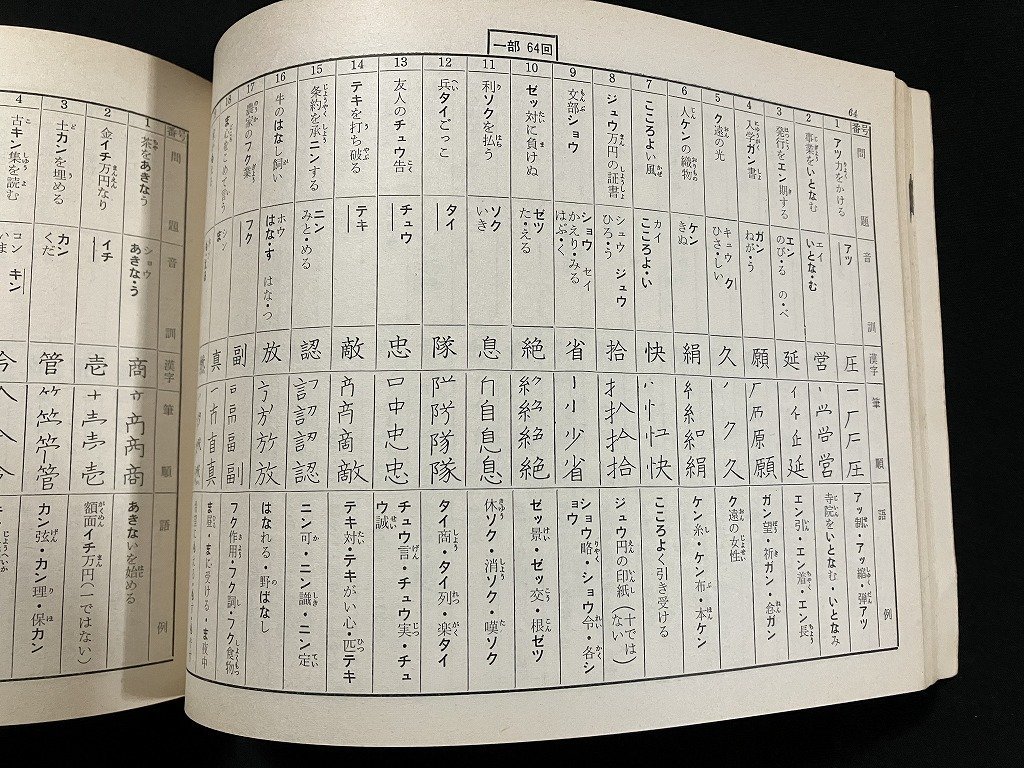 一部 64回
64
番号 問題 音訓 漢字 筆順 語例
1 アツ力をかける アツ 圧 アツ制・アツ縮・弾アツ
2 事業をいとなむ エイ いとな・む 営 寺院をいとなむ・いとなみ
3 発行をエン期する エン のび・る の・べ 延 エン引・エン着・エン長
4 入学ガン書 ガン ねが・う 願 ガン望・祈ガン・念ガン
5 ク遠の光 キュウ ク ひさ・しい 久 ク遠の女性
6 人ケンの織物 ケン きぬ 絹 ケン糸・ケン布・本ケン
7 こころよい風 カイ こころよ・い 快 こころよく引き受ける
8 ジュウ万円の証書 シュウ ジュウ ひろ・う 拾 ジュウ円の印紙(十ではない)
9 文部ショウ ショウ セイ かえり・みる はぶ・く 省 ショウ略・ショウ令・各ショウ
10 ゼッ対に負けぬ ゼツ た・える 絶 ゼッ景・ゼッ交・根ゼツ
11 利ソクを払う ソク いき 息 休ソク・消ソク・嘆ソク
12 兵タイごっこ タイ 隊 タイ商・タイ列・楽タイ
13 友人のチュウ告 チュウ 忠 チュウ言・チュウ実・チュウ誠
14 テキを打ち破る テキ 敵 テキ対・テキがい心・匹テキ
15 条約を承ニンする ニン みと・める 認 ニン可・ニン識・ニン定
16 牛のはなし飼い ホウ はな・す はな・つ 放 はなれる・野ばなし
17 農家のフク業 フク 副 フク作用・フク詞・フク食物
18 シン ま 真
番号 問題 音訓 漢字 筆順 語例
1 茶をあきなう ショウ あきな・う 商 あきないを始める
2 金イチ万円なり イチ 壱 額面イチ万円(一ではない)
3 土カンを埋める カン くだ 管 カン弦・カン理・保カン
4 古キン集を読む コン キン いま 今